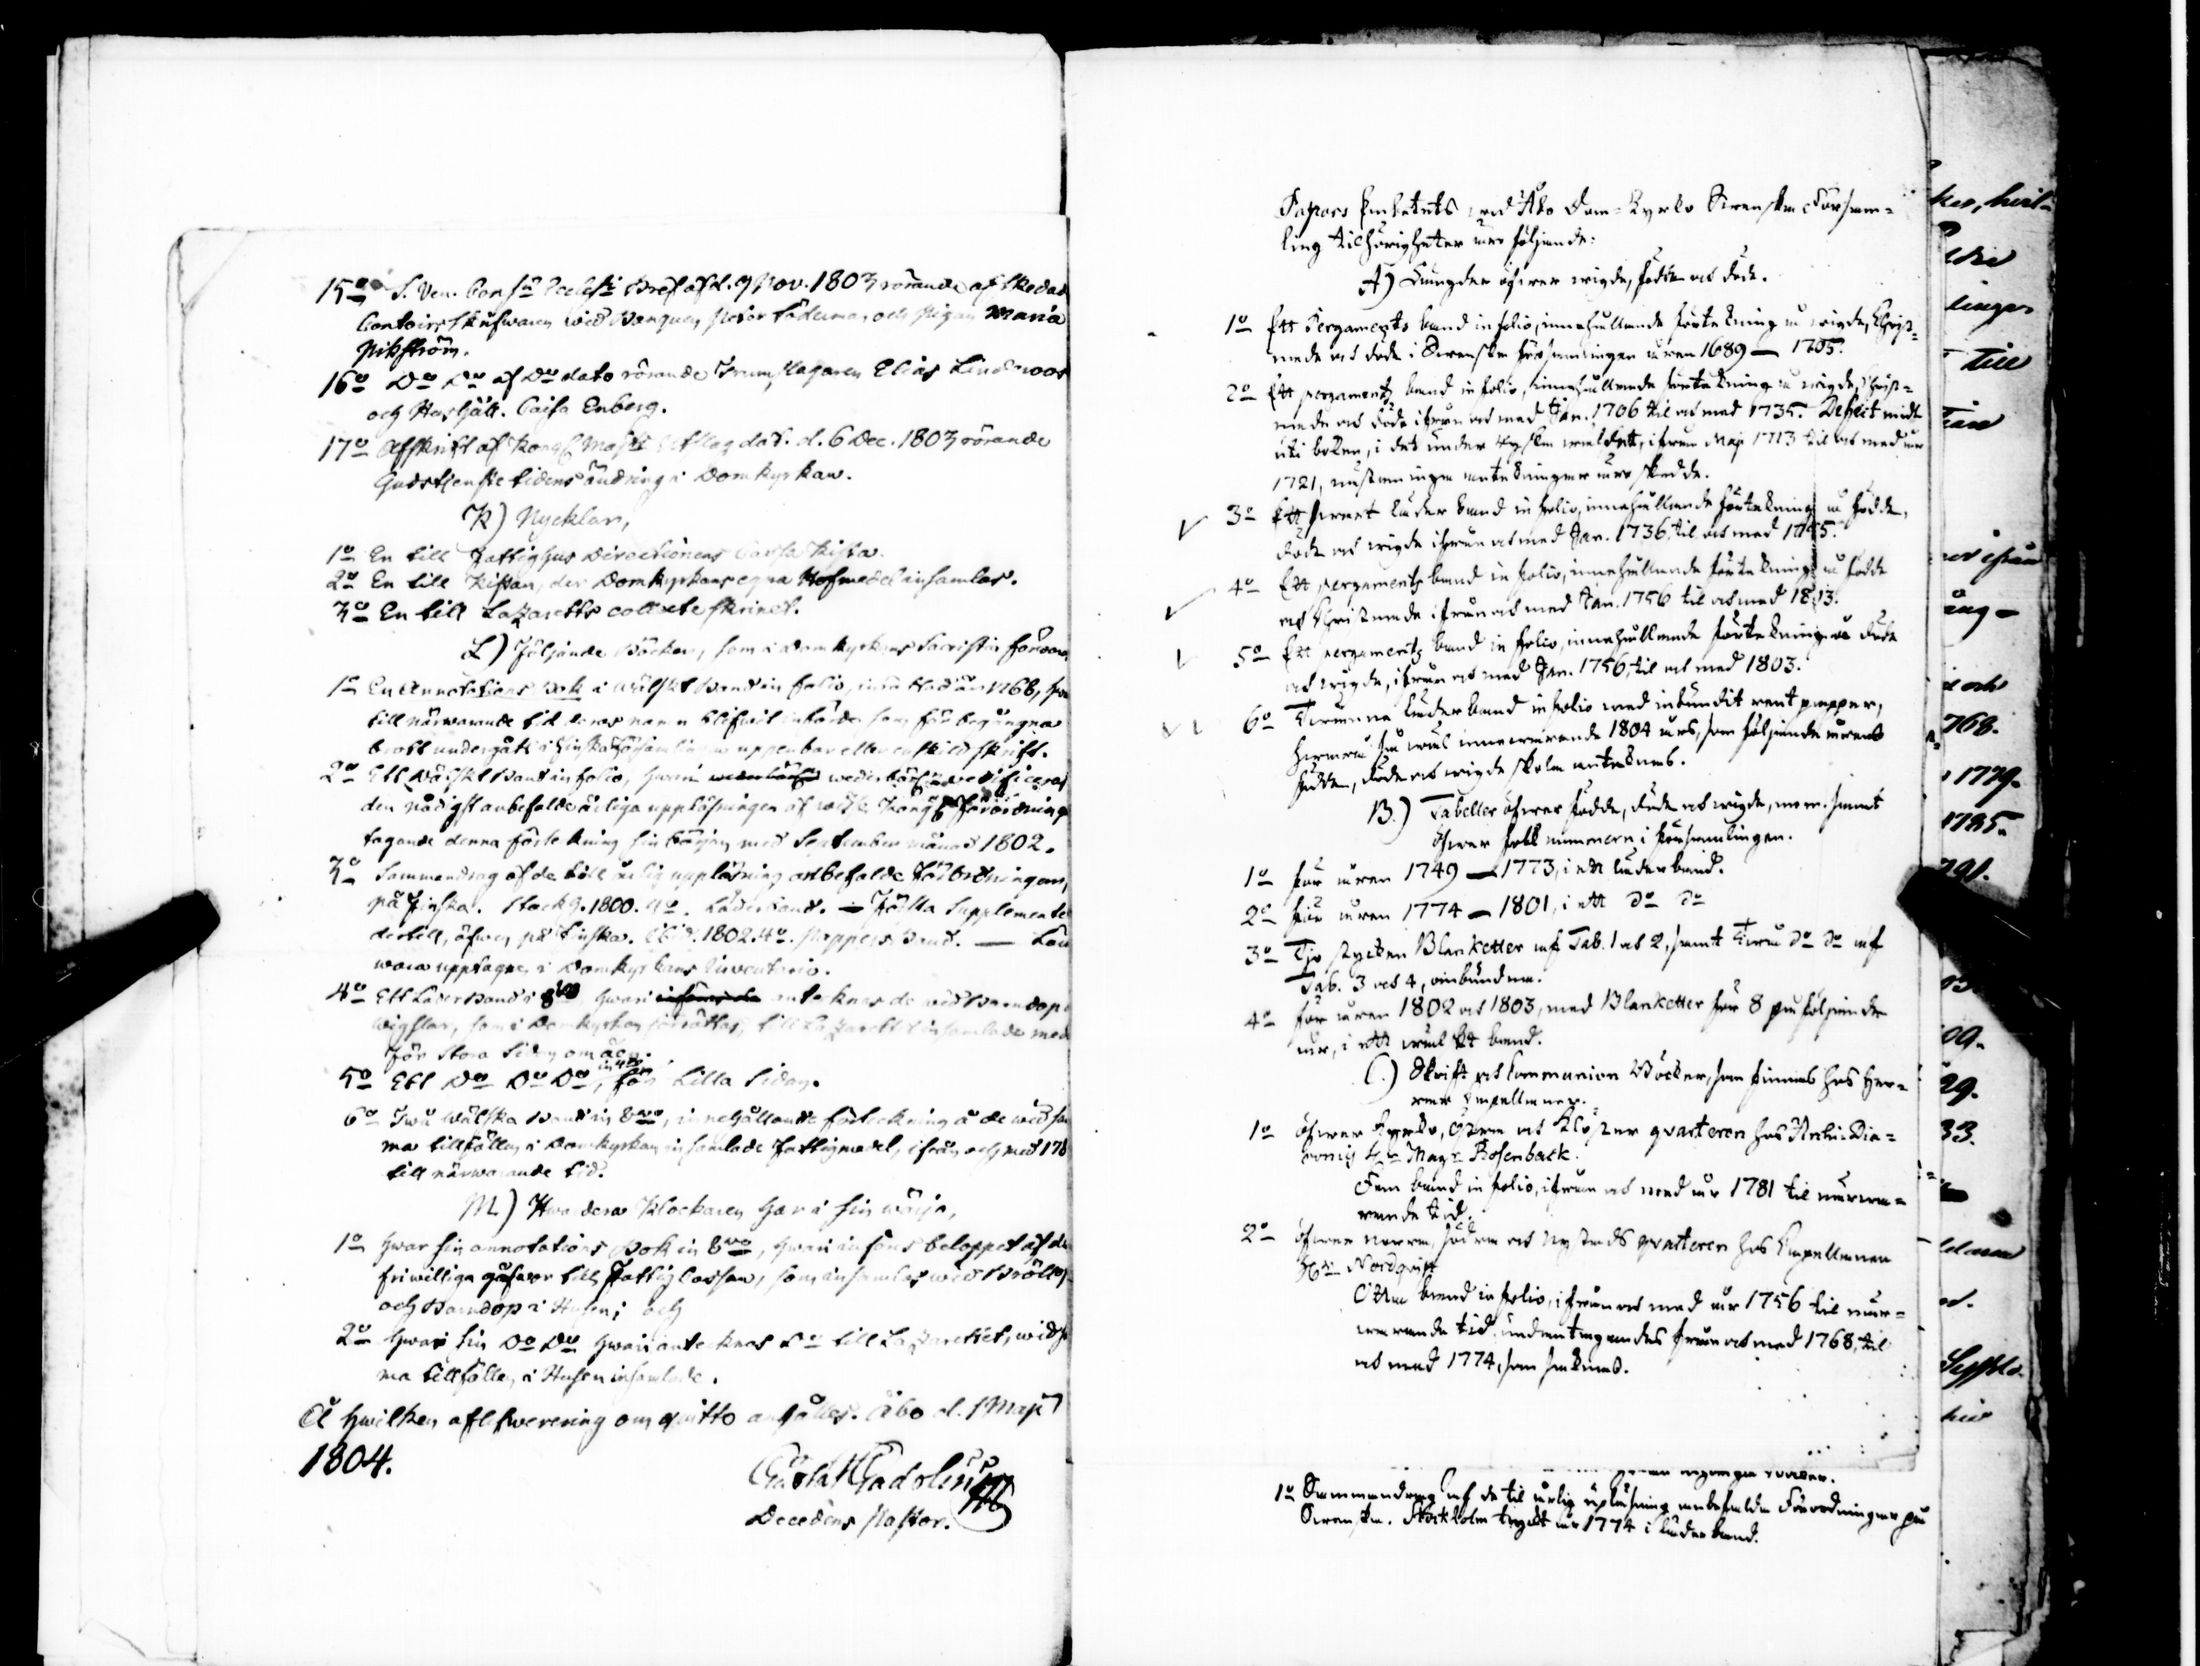 15o S. Ven. Consist. Eccles. Bref af d. 9 Nov. 1803 rörande afskedade
Contoirsskrifwaren wid Banquen Petor Söderman och Pigan Maria
Wikström.
16o Do Do af Do dato rörande Trumslagaren Elias Lindroos
och Hustrun Caisa Enberg.
17o Afskrift af Kongl. Maj:ts Utslag dat. d. 6 Dec. 1803 rörande
Gudstjenste tidens ändring i Domkyrkan.
K) Nycklar,
1o En till Fattighus Directionens Cassa Kista.
2o En till Kistan, der Domkyrkans egna Håfmedel insamlas.
3o En till Lazaretts collecte skrinet.
L) Följande Böcker, som i Domkyrkans Sacristia förwaras
1o En Annotations Bok i Wälskt Band in folio, inrättad år 1768, 
till närwarande tid deras namn blifwit införde som för begångna
brott undergått i Finska Församlingen uppenbar eller enskild skrift.
2o Ett Wälskt Band in folio, hwari wederbörligen verificeras
den nådigst anbefalde årliga uppläsningen af wisse Kongl. Förordningar
tagande denna förtekning sin början med September månad 1802.
3o Sammandrag af de till årlig uppläsning anbefalde Förordningar,
på Finska. Stockh. 1800. 4o. Läderband. — Första Supplementet
dertill, äfwen på Finska. Ibid. 1802. 4o. Pappers Band. —
wara upptagne i Domkyrkans Inventario.
4o Ett Läder Band i 8vo hwari antecknas de wid Barndop o
Wigslar, som i Domkyrkan förrättas, till Lazarettet insamlade medel
för Stora Sidan om åen.
5o Ett Do Do Do, in 4to för Lilla Sidan.
6o Twå Wälska Band in 8vo, innehållande förteckning å de wid sam
ma tillfällen i Domkyrkan insamlade Fattigmedel, ifrån och med 178
till närwarande tid.
M) Hwardera Klockaren har i sin wärjo,
1o Hwar sin annotations Bok in 8vo, hwari införes beloppet af de
friwilliga gåfwor till Fattig Cassan, som insamlas wid Bröllop
och Barndop i Husen; och
2o Hwar sin Do Do hwari antecknas Do till Lazarettet, wid sam
ma tillfällen i Husen insamlade.
Å hwilken aflefwerering om quitto anhålles. Åbo d. 1 Maji
1804.
Gustaf Gadolin
Decedens Pastor.
Pastors Embetets wid Åbo Dom-Kyrko Swenska Försam=
ling tilhörigheter äro följande:
A) Längder öfwer wigde, födde och döde.
1o Ett Pergaments band in folio, innehållande förtekning å wigde, Christ=
nade och döde i Swenska församlingen åren 1689 — 1705.
2o Ett pergaments band in folio, innehållande förtekning å wigde, Christ=
nade och döde ifrån och med Jan. 1706 til och med 1735. Defect midt
uti boken, i det under Ryska wäldet, ifrån Maji 1713 til och med år
1721, nästan inga antekningar äro skedde.
3o Ett swart läder band in folio, innehållande förtekning på födde,
döde och wigde ifrån och med Jan. 1736 til och med 1755.
4o Ett pergaments band in folio, innehållande förtekning på födde
och Christnade ifrån och med Jan. 1756 til och med 1803.
5o Ett pergaments band in folio, innehållande förtekning på döde
och wigde, ifrån och med Jan. 1756 til och med 1803.
6o Twänne läderband in folio med inbundit rent papper,
hwaruti så wäl innewarande 1804 års, som följande årens
födde, döde och wigde skola anteknas.
B.) Tabeller öfwer födde, döde och wigde, m. m. samt
öfwer folk nummern i församlingen.
1o för åren 1749 — 1773, i ett läderband.
2o för åren 1774 — 1801, i ett do do
3o Tjo stycken Blanketter af Tab. 1 och 2, samt Twå do do af
Tab. 3 och 4, oinbundna.
4o för åren 1802 och 1803, med Blanketter för 8 på följande
år, i ett wälskt band.
C.) Skrift och Communion Böcker, som finnas hos Her=
rar Capellaner.
1o öfwer Kyrko, Östra och Kloster qvarteren hos Archi-Dia=
conus Hr Mag:r Rosenback.
Fem band in folio, ifrån och med år 1781 til närwa=
rande tid.
2o öfwer norra, södra och Nystads qvarteren hos Capellanen
Hr Nordqvist
Otta band in folio, ifrån och med år 1756 til när=
warande tid, undantagandes ifrån och med 1768, til
och med 1774, som saknas.
1o Sammandrag af de til årlig upläsning anbefalda Förordningar på
Swenska. Stockholm tryckt år 1774 i läderband.
768.
1779.
1785.
791.